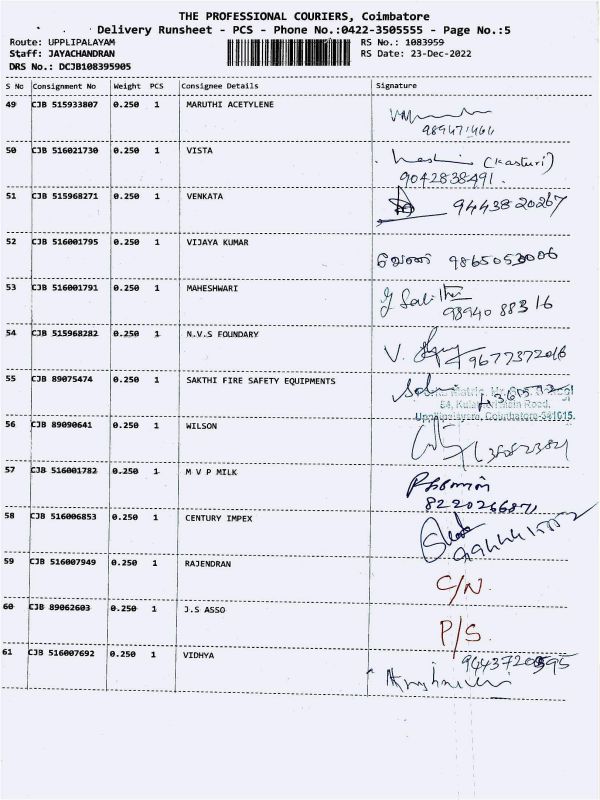 THE PROFESSIONAL COURIERS, Coimbatore
Delivery Runsheet - PCS - Phone No.:0422-3505555 - Page No.:5
Route: UPPLIPALAYAM RS No.: 1083959
Staff: JAYACHANDRAN RS Date: 23-Dec-2022
DRS No.: DCJB108395905
S No Consignment No Weight PCS Consignee Details Signature
49 CJB 515933807 0.250 1 MARUTHI ACETYLENE
50 CJB 516021730 0.250 1 VISTA (Kasturi)
9042838491.
51 CJB 515968271 0.250 1 VENKATA 9443820267
52 CJB 516001795 0.250 1 VIJAYA KUMAR 9865053006
53 CJB 516001791 0.250 1 MAHESHWARI
98940 88316
54 CJB 515968282 0.250 1 N.V.S FOUNDARY V. 9677372016
55 CJB 89075474 0.250 1 SAKTHI FIRE SAFETY EQUIPMENTS
Uppilipalayam, Coimbatore-641015.
56 CJB 89090641 0.250 1 WILSON
57 CJB 516001782 0.250 1 M V P MILK
8220266871
58 CJB 516006853 0.250 1 CENTURY IMPEX
59 CJB 516007949 0.250 1 RAJENDRAN C/N.
60 CJB 89062603 0.250 1 J.S ASSO P/S.
61 CJB 516007692 0.250 1 VIDHYA 9443720595